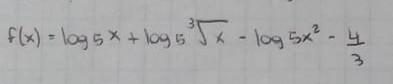 f(x) = log 5 x + log 5 ∛x - log 5 x² - 4/3